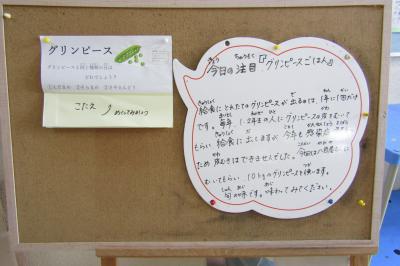 グリンピース
グリンピースと同じ種類の豆は
どれでしょう?
こたえ
めくってみましょう
今日の注目『グリンピースごはん』
給食にとれたてのグリンピースが出るのは、1年に1回だけ
です。毎年、1、2年生の人にグリンピースの皮をむいて
もらい給食に出しますが今年も感染症
ため皮むきはできませんでした。今回は八百屋さんに
むいてもらい10kgのグリンピースを使います。
旬の味です。味わってみてください。